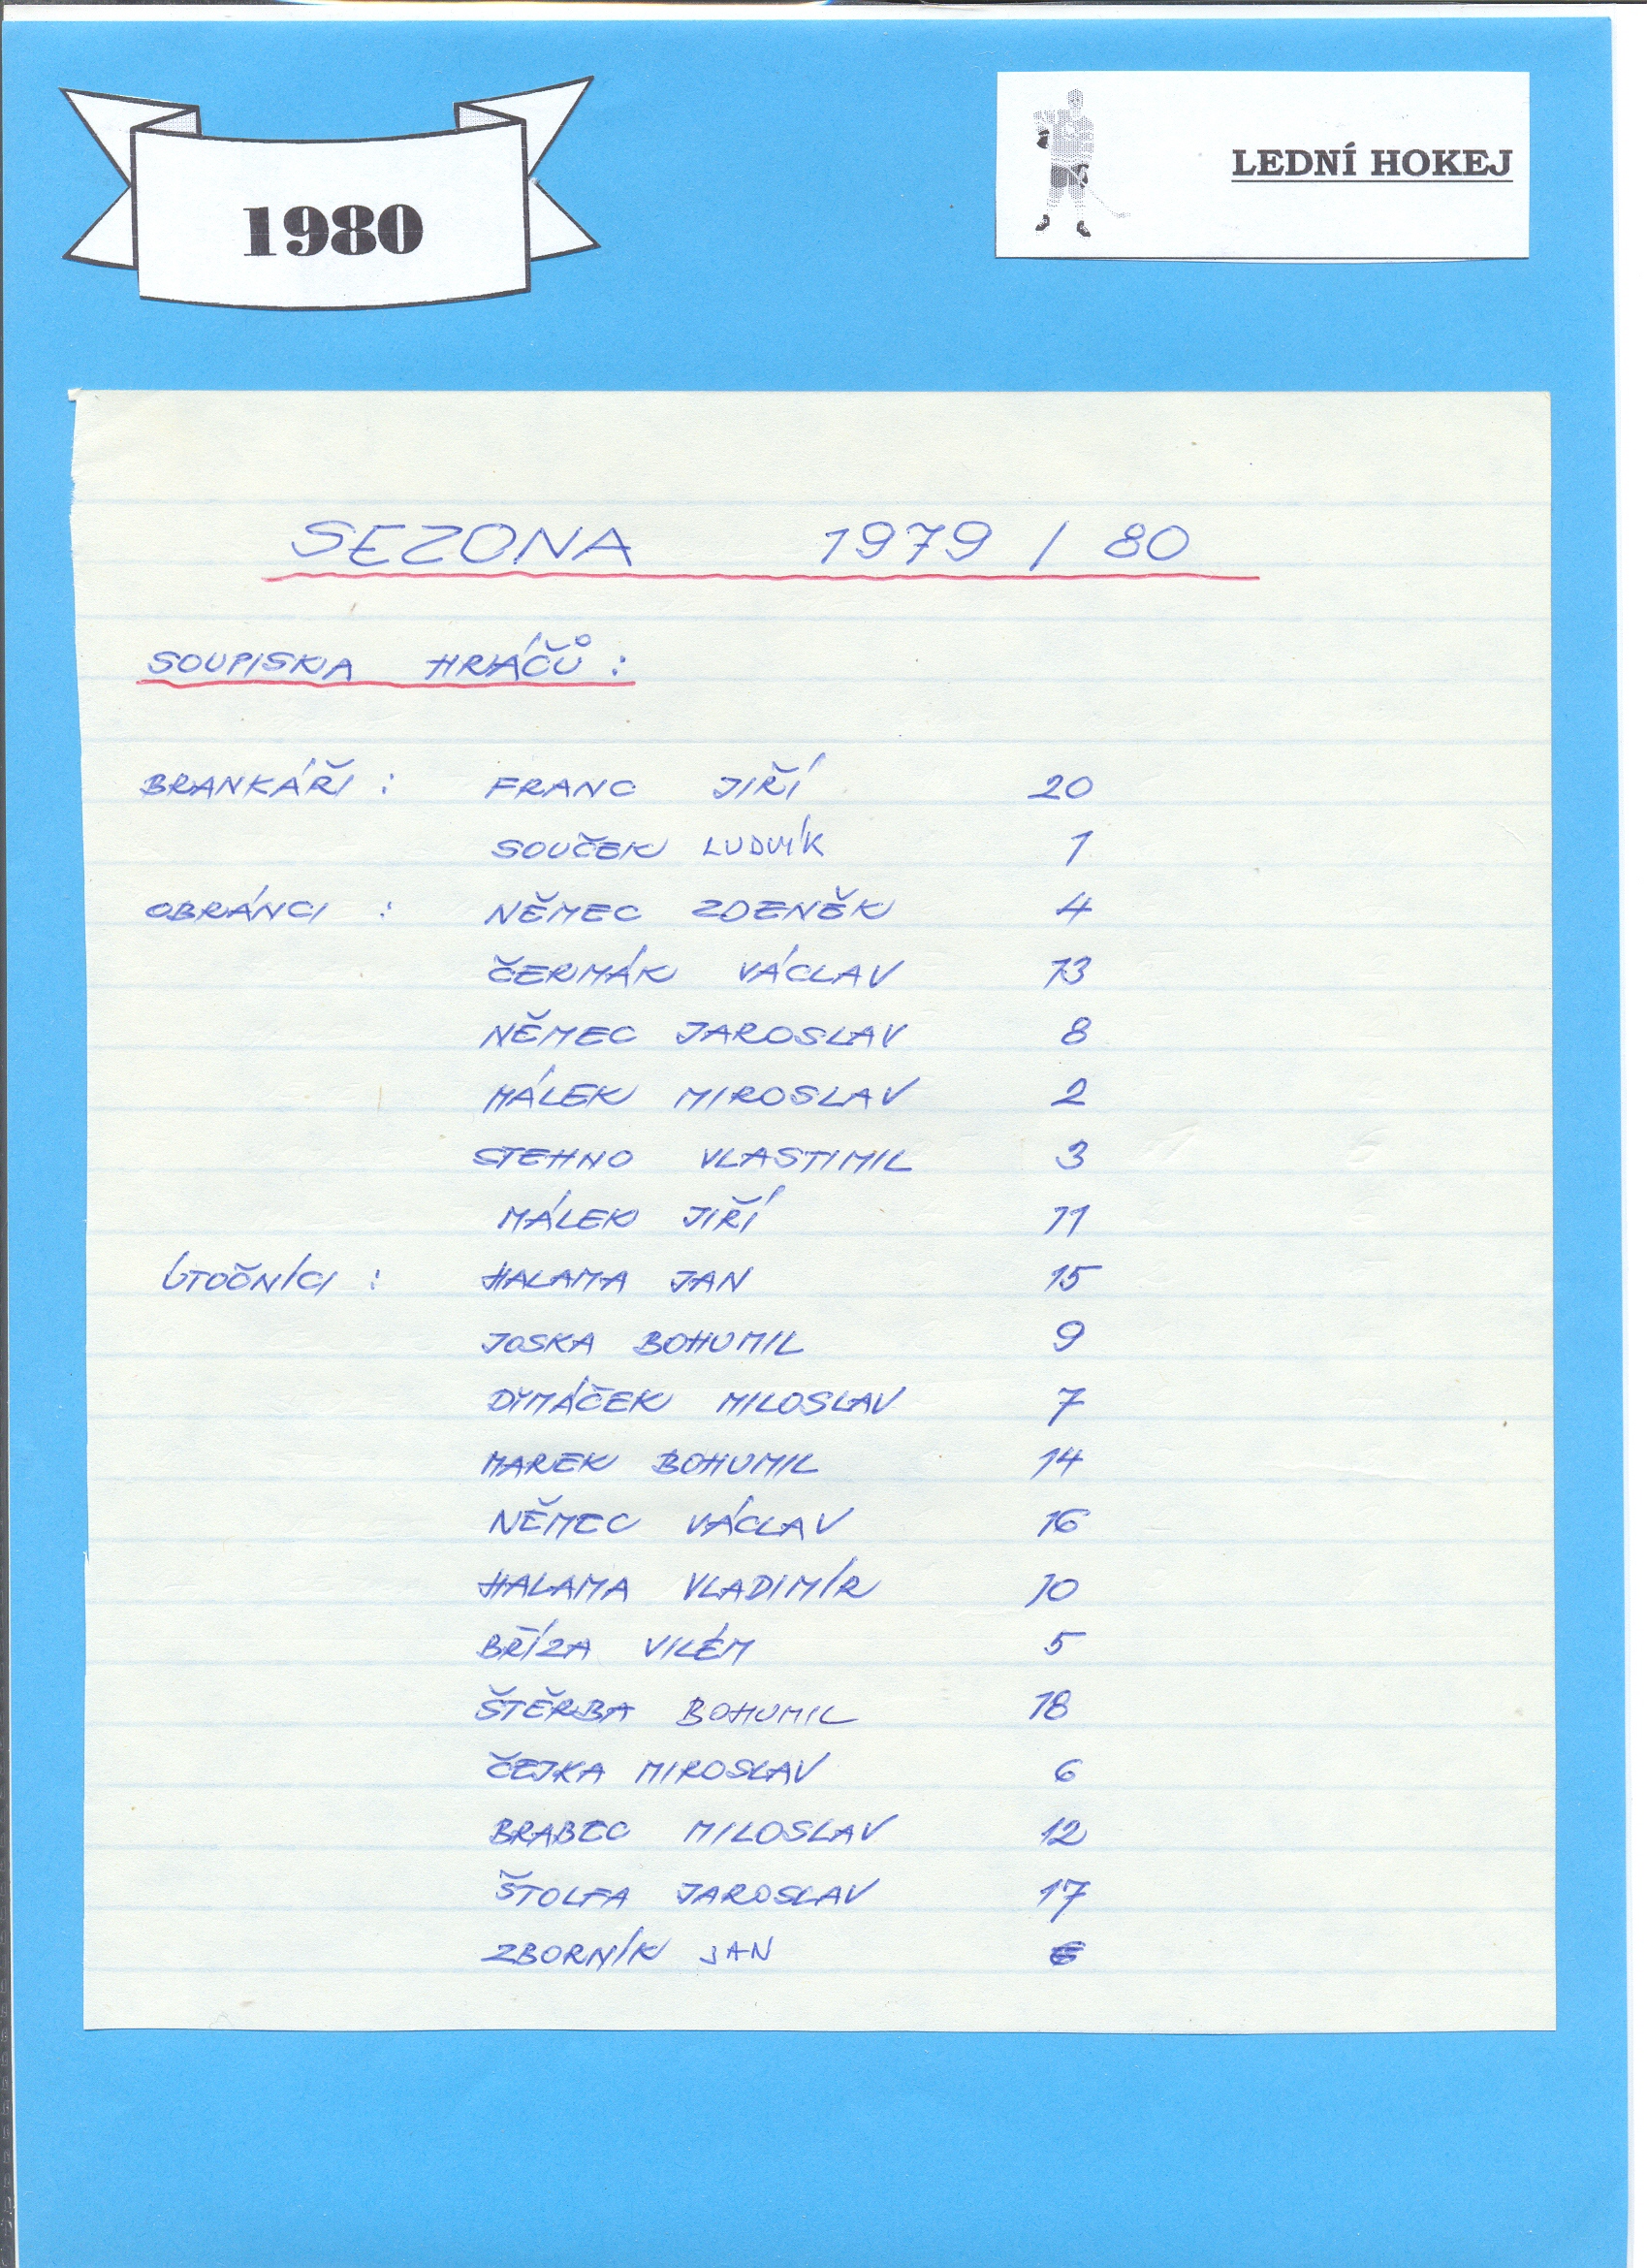 1980
LEDNÍ HOKEJ
SEZONA 1979 / 80
SOUPISKA HRÁČŮ :
BRANKÁŘI : FRANC JIŘÍ 20
SOUČEK LUDVÍK 1
OBRÁNCI : NĚMEC ZDENĚK 4
ČERMÁK VÁCLAV 13
NĚMEC JAROSLAV 8
MÁLEK MIROSLAV 2
STEHNO VLASTIMIL 3
MÁLEK JIŘÍ 11
ÚTOČNÍCI : HALAMA JAN 15
JOSKA BOHUMIL 9
DYMÁČEK MILOSLAV 7
MAREK BOHUMIL 14
NĚMEC VÁCLAV 16
HALAMA VLADIMÍR 10
BŘÍZA VILÉM 5
ŠTĚRBA BOHUMIL 18
ČEJKA MIROSLAV 6
BRABEC MILOSLAV 12
ŠTOLFA JAROSLAV 17
ZBORNÍK JAN